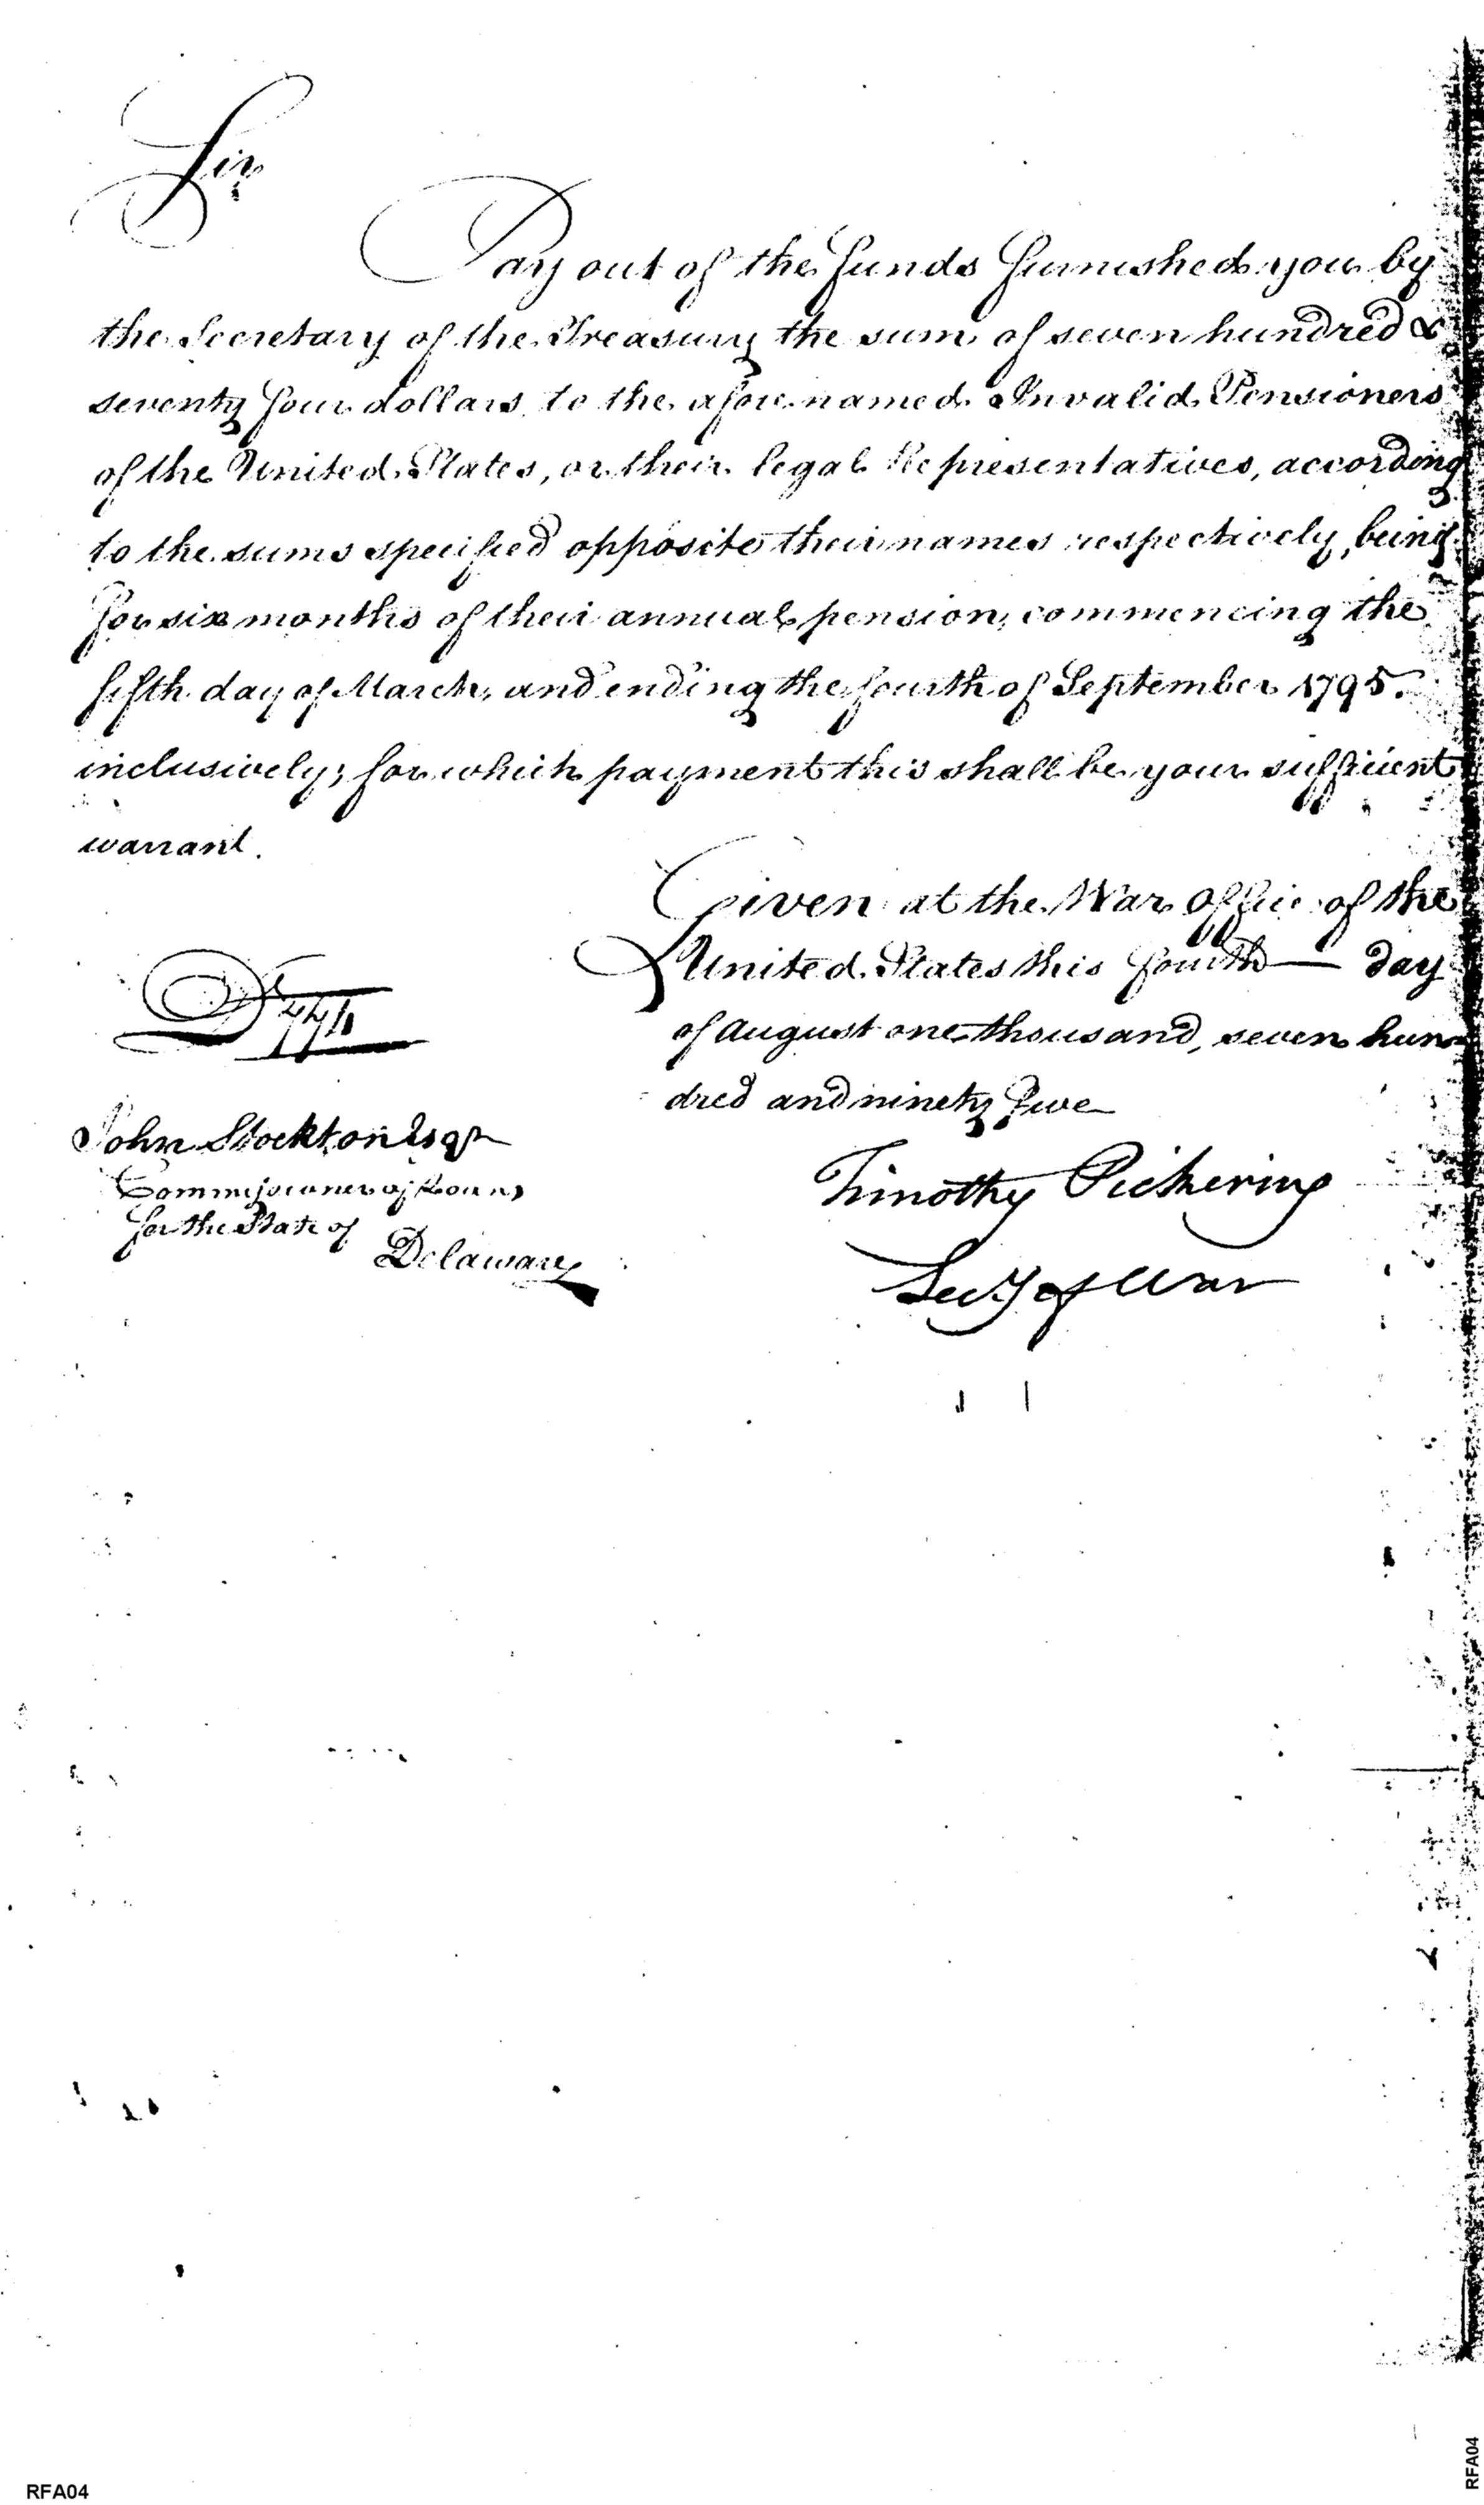 Sir
Pay out of the funds furnished you by
the Secretary of the Treasury the sum of seven hundred &
seventy four dollars to the afore named Invalid Pensioners
of the United States, or their legal Representatives, according
to the sums specified opposite their names respectively, being
for six months of their annual pension, commencing the
fifth day of March, and ending the fourth of September 1795.
inclusively; for which payment this shall be your sufficient
warrant.
Given at the War Office of the
United States this fourth — day
of August one thousand, seven hun
dred and ninety five
Ds 774
John Stockton Esqr
Commissioner of Loans
for the State of
Delaware
Timothy Pickering
Secy of War
RFA04
RFA04